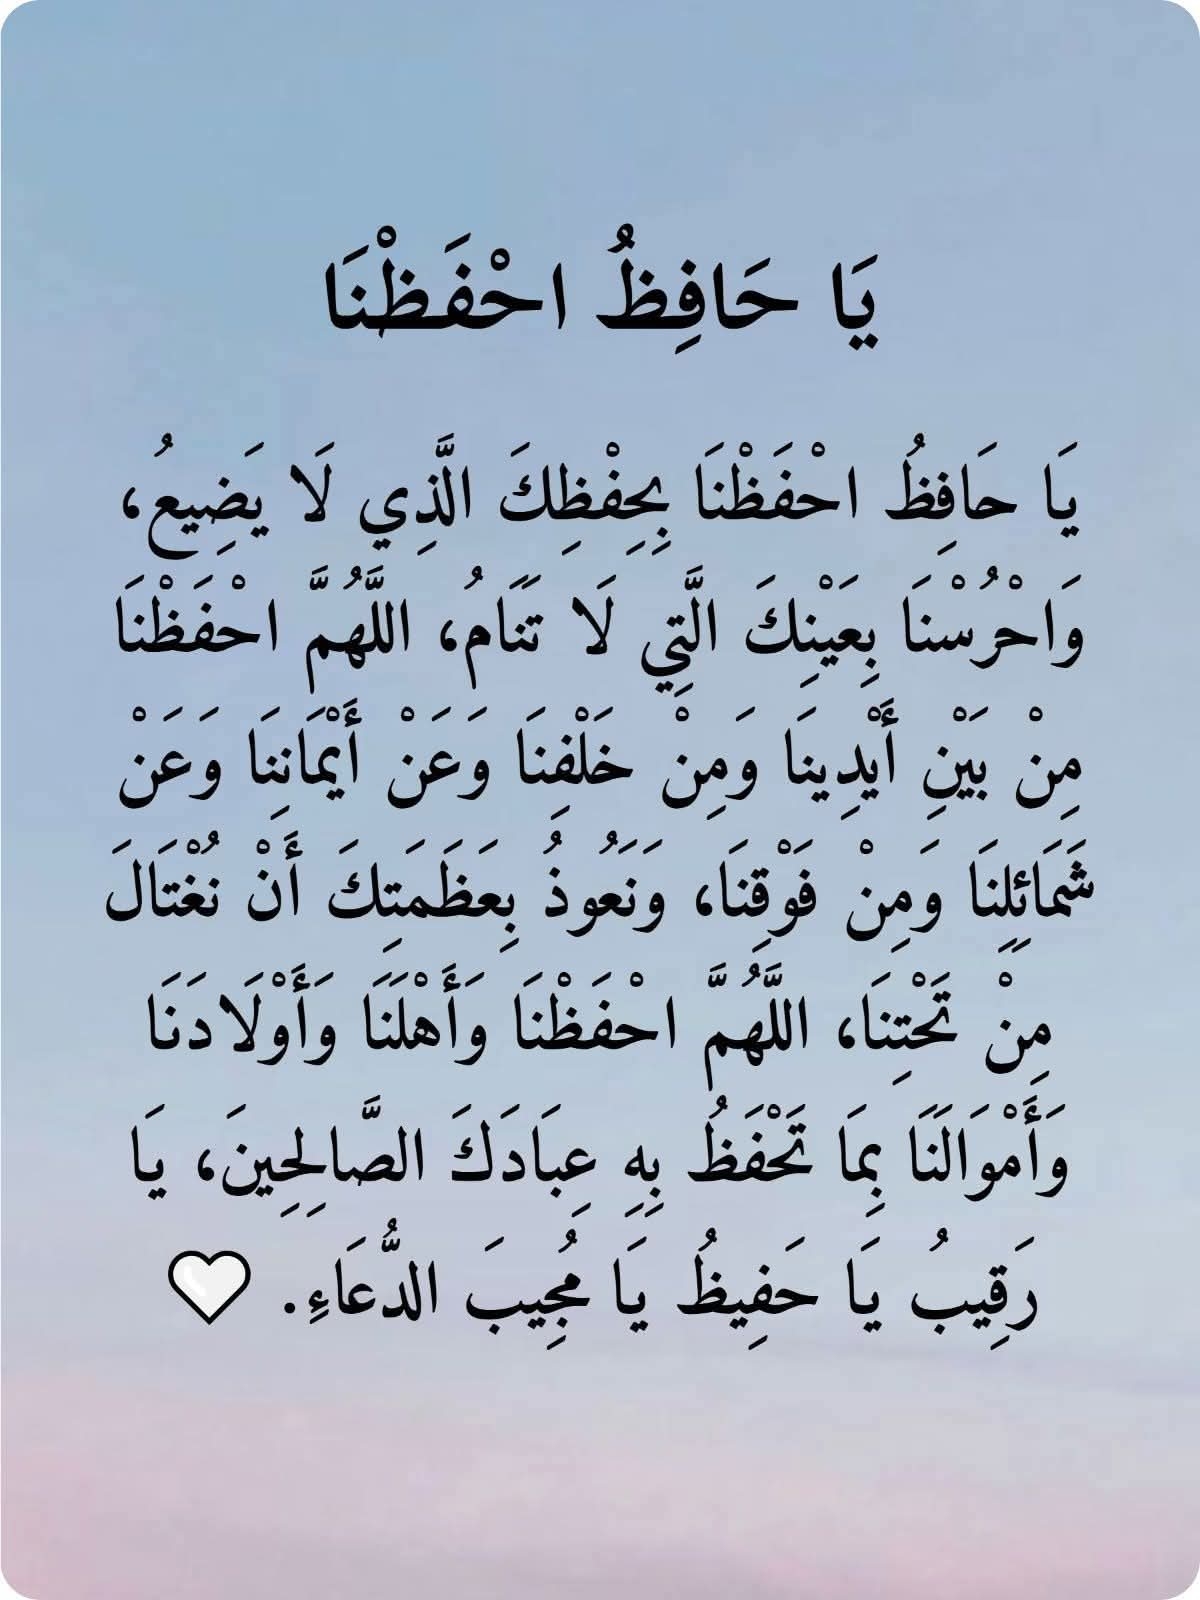 يَا حَافِظُ احْفَظْنَا
يَا حَافِظُ احْفَظْنَا بِحِفْظِكَ الَّذِي لَا يَضِيعُ،
وَاحْرُسْنَا بِعَيْنِكَ الَّتِي لَا تَنَامُ، اللَّهُمَّ احْفَظْنَا
مِنْ بَيْنِ أَيْدِينَا وَمِنْ خَلْفِنَا وَعَنْ أَيْمَانِنَا وَعَنْ
شَمَائِلِنَا وَمِنْ فَوْقِنَا، وَنَعُوذُ بِعَظَمَتِكَ أَنْ نُغْتَالَ
مِنْ تَحْتِنَا، اللَّهُمَّ احْفَظْنَا وَأَهْلَنَا وَأَوْلَادَنَا
وَأَمْوَالَنَا بِمَا تَحْفَظُ بِهِ عِبَادَكَ الصَّالِحِينَ، يَا
رَقِيبُ يَا حَفِيظُ يَا مُجِيبَ الدُّعَاءِ. 🤍